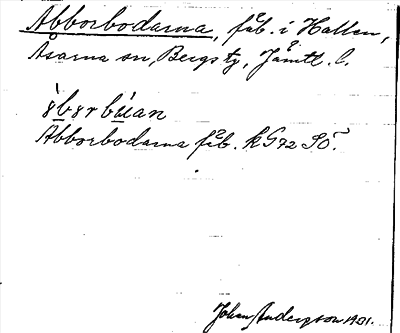 Abborbodarna, fäb. i Hallen,
Åsarna sn, Bergs tg, Jämtl. l.
Abborbodarna fäb. kG72 SÖ.
John Anderson 1901.